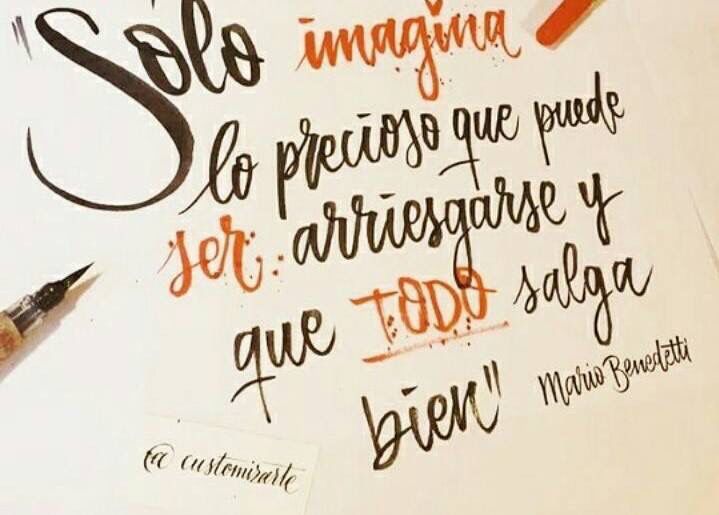 "Sólo imagina
lo precioso que puede
ser arriesgarse y
que TODO salga
bien"
Mario Benedetti
@customizarte